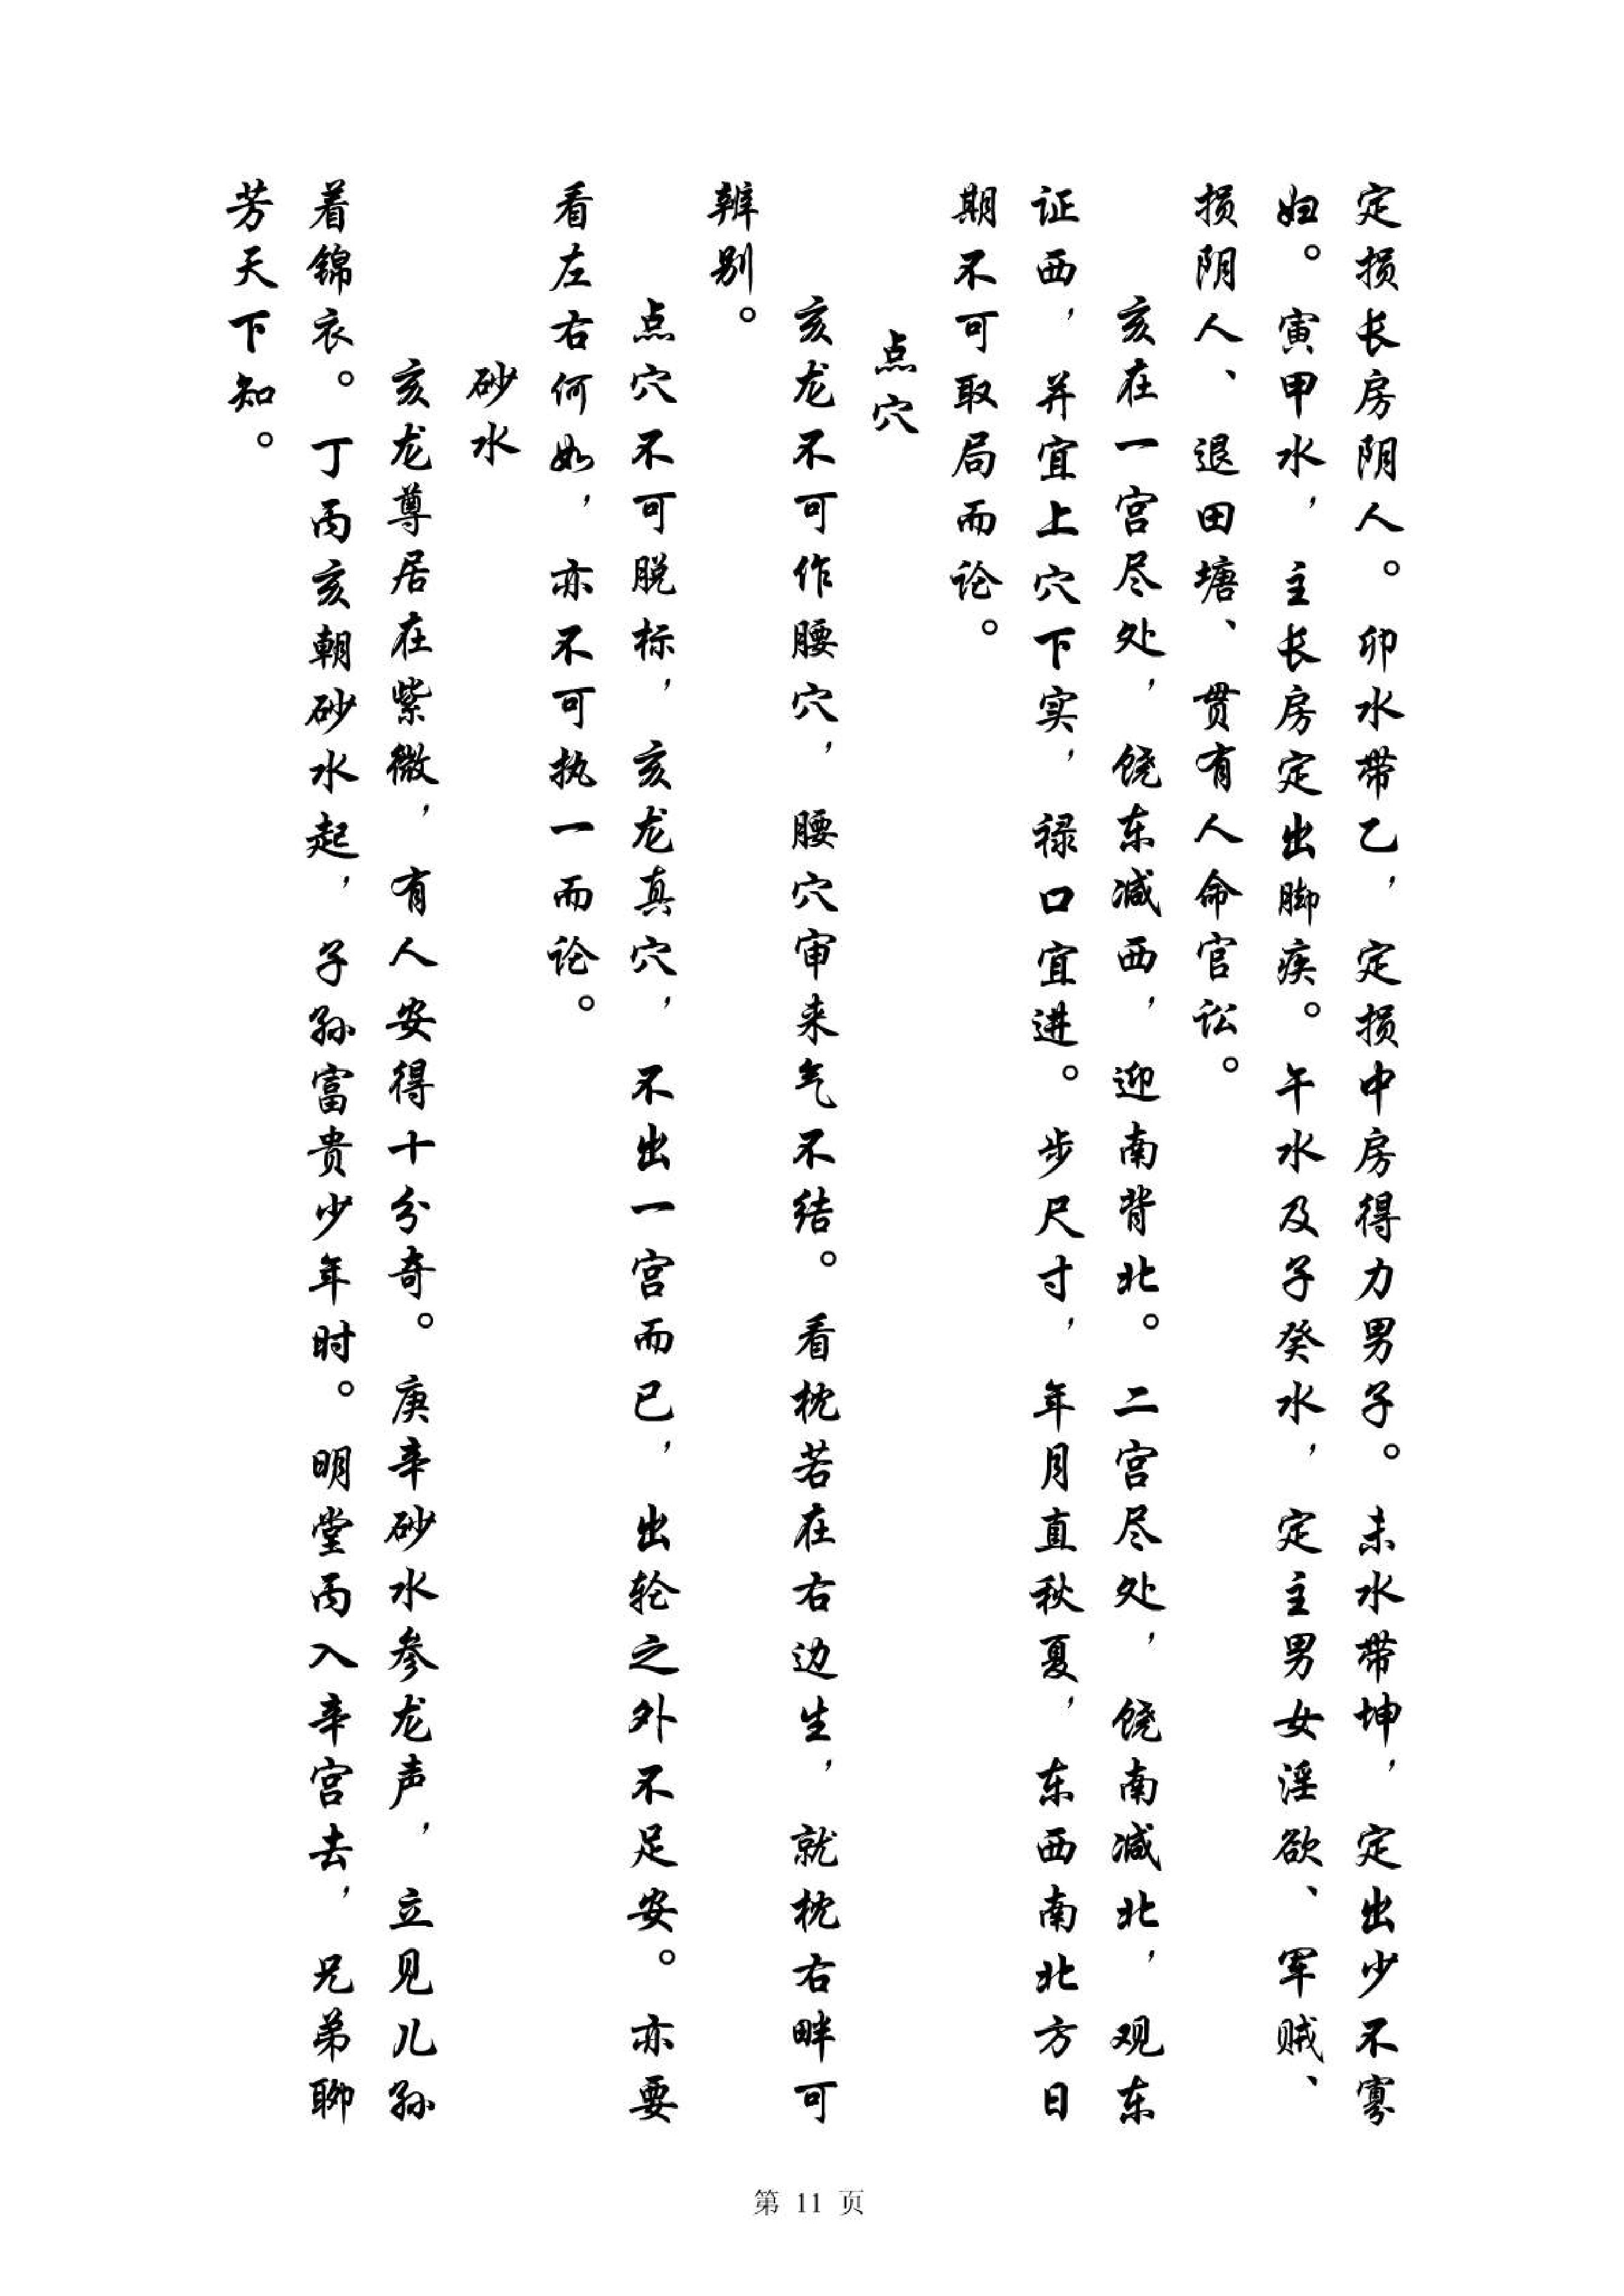 定损长房阴人。卯水带乙，定损中房得力男子。未水带坤，定出少不寡
妇。寅甲水，主长房定出脚疾。午水及子癸水，定主男女淫欲、军贼、
损阴人、退田塘、贯有人命官讼。
亥在一宫尽处，饶东减西，迎南背北。二宫尽处，饶南减北，观东
证西，并宜上穴下实，禄口宜进。步尺寸，年月直秋夏，东西南北方日
期不可取局而论。
点穴
亥龙不可作腰穴，腰穴审来气不结。看枕若在右边生，就枕右畔可
辨别。
点穴不可脱标，亥龙真穴，不出一宫而已，出轮之外不足安。亦要
看左右何如，亦不可执一而论。
砂水
亥龙尊居在紫微，有人安得十分奇。庚辛砂水参龙声，立见儿孙
着锦衣。丁丙亥朝砂水起，子孙富贵少年时。明堂丙入辛宫去，兄弟聊
芳天下知。
第 11 页